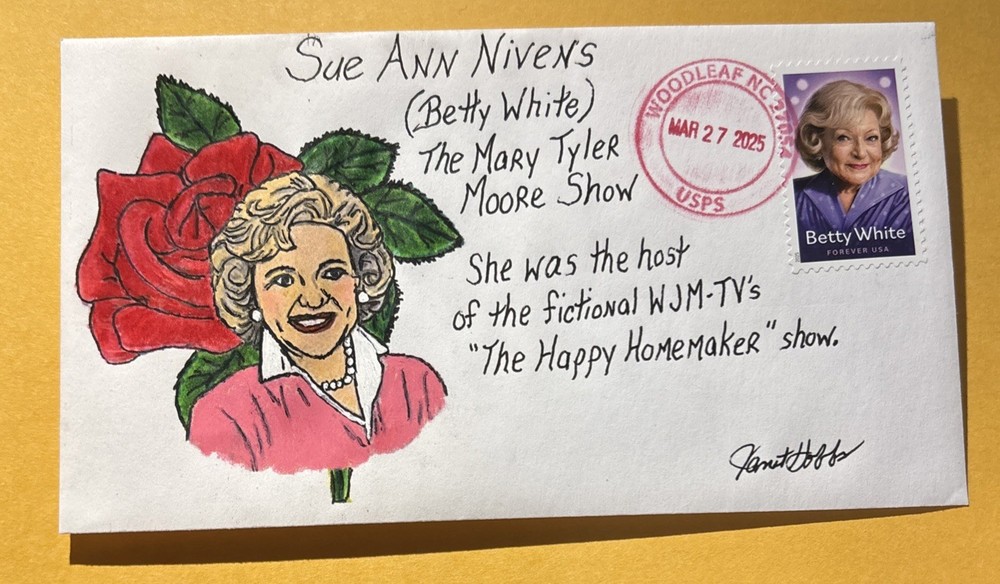 Sue Ann Nivens
(Betty White)
The Mary Tyler
Moore Show
She was the host
of the fictional WJM-TV's
"The Happy Homemaker" show.
WOODLEAF NC 27054
MAR 27 2025
USPS
Betty White
FOREVER USA
Janet Hobbs